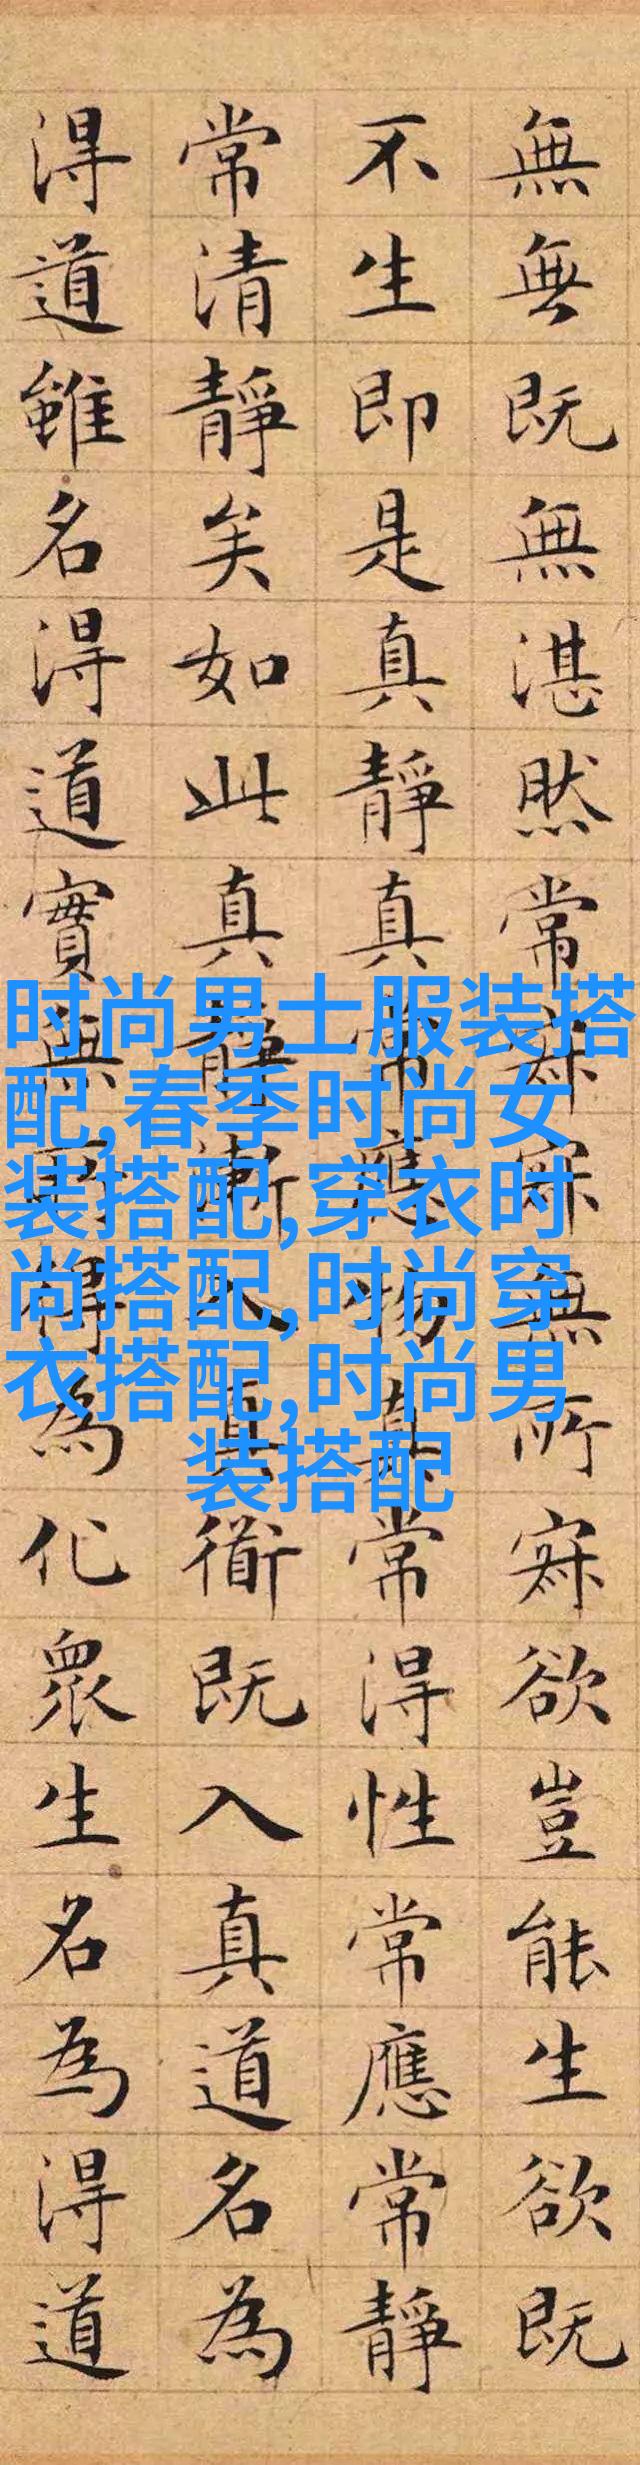 無無既無湛然常寂寂無所寂欲豈能生欲既
不生即是真靜真常應物真常得性常應常靜
常清靜矣如此真靜漸入真道既入真道名為
得道雖名得道實無所得為化眾生名為得道
时尚男士服装搭
配,春季时尚女
装搭配,穿衣时
尚搭配,时尚穿
衣搭配,时尚男
装搭配